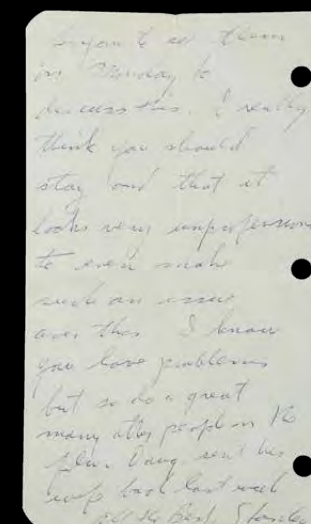 to see them
on Monday to
discuss this. I really
think you should
stay and that it
looks very unprofession
to even make
such an issue
over this I know
you have problems
but so do a great
many other people in the
film. Doug sent his
wife back last week
All the best, Stanley